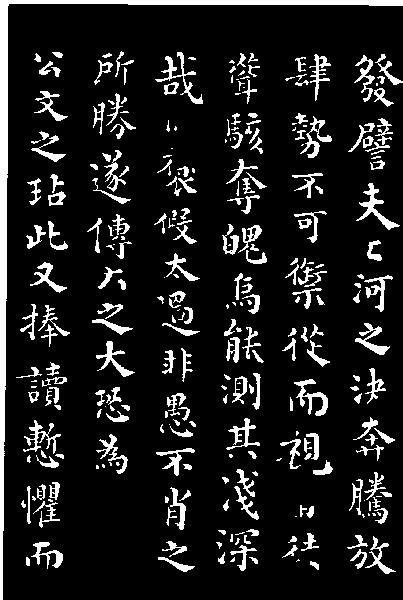 發譬夫江河之決奔騰放
肆勢不可禦從而視徒
聳駭奪魄烏能測其淺深
哉褒假太過非愚不肖之
所勝遂傳之大恐為
公文之玷此又捧讀慙懼而